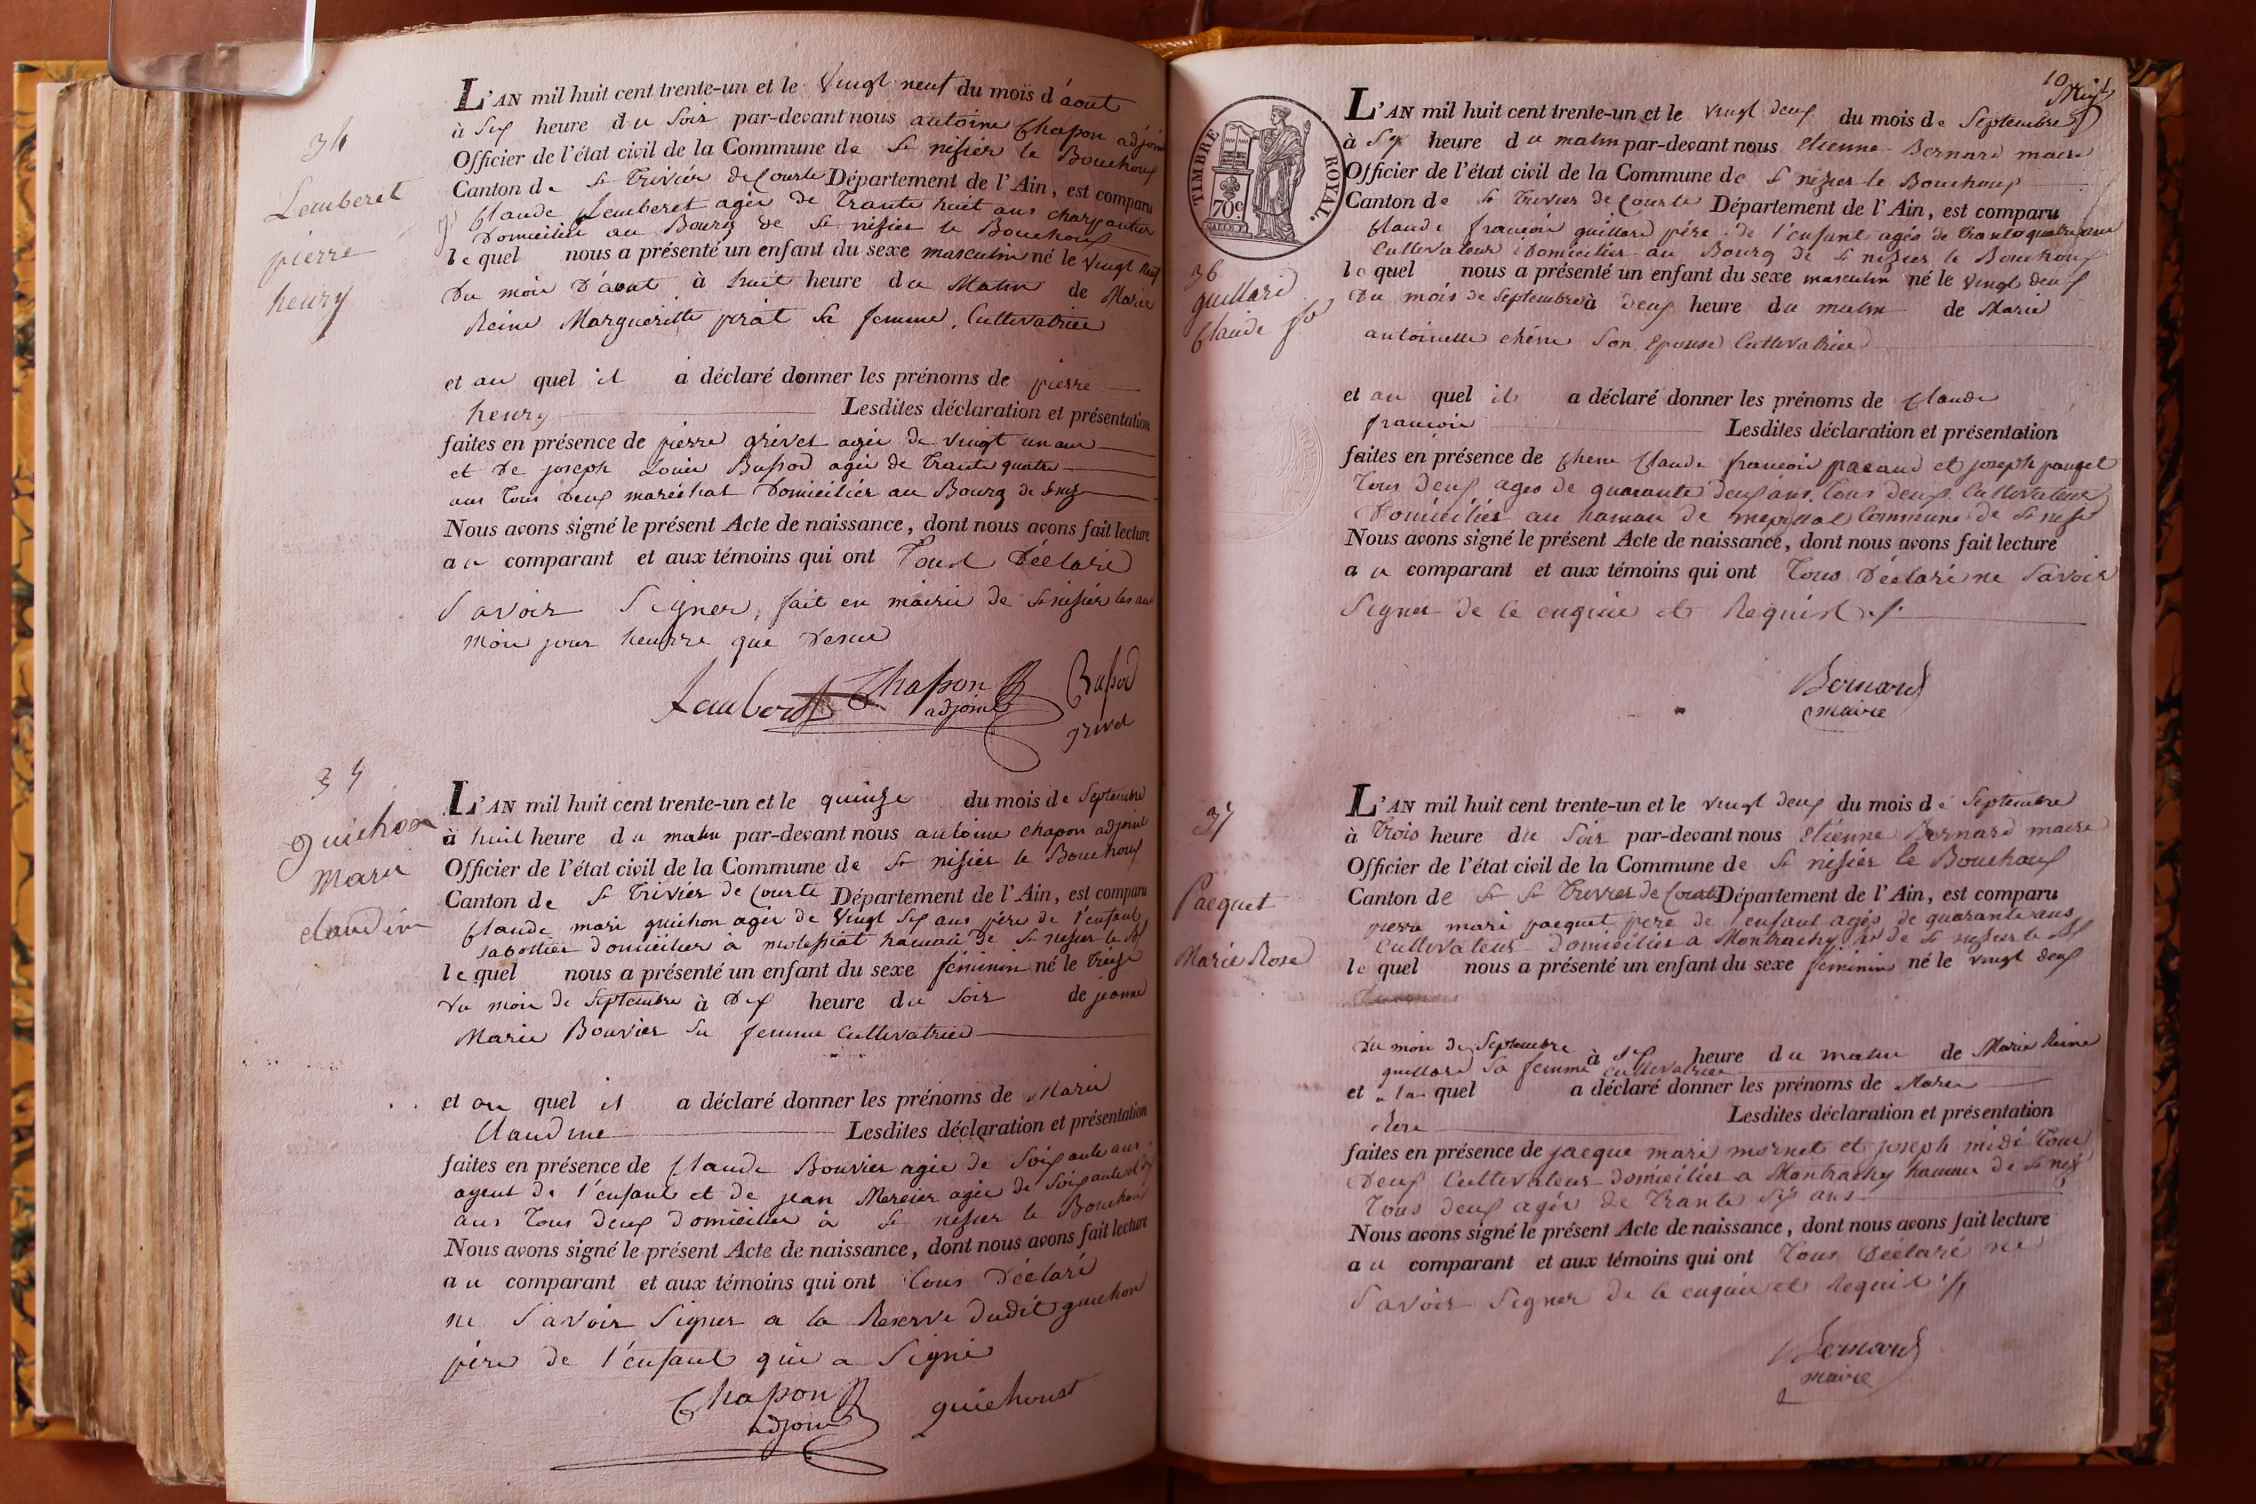 34
Lemberet
pierre
henry
L'AN mil huit cent trente-un et le Vingt neuf du mois d'aout
à Six heure du Soir par-devant nous antoine Chapon adjoint
Officier de l'état civil de la Commune de St nisier le Bouchoux
Canton de St Trivier de Courte Département de l'Ain, est comparu
Claude Lemberet agée de Trante huit ans charpantier
Domicilié au Bourg de St nisier le Bouchoux
lequel nous a présenté un enfant du sexe masculin né le Vingt neuf
Du mois D'aout à huit heure du Matin de Marie
Reine Margueritte pirat Sa femme, Cultivatrice
et au quel il a déclaré donner les prénoms de pierre
henry Lesdites déclaration et présentation
faites en présence de pierre grivet agée de Vingt un ans
et De joseph Louis Bussod agée de Trante quatre
ans Tous Deux maréchal Domiciliés au Bourg de
Nous avons signé le présent Acte de naissance, dont nous avons fait lecture
au comparant et aux témoins qui ont Tous Déclaré
Savoir Signer, fait en mairie de St nisier les an
mois jour heurre que Desus
Lemberet Chapon adjoint Bussod
grivet
35
guichon
Marie
claudine
L'AN mil huit cent trente-un et le quinze du mois de Septembre
à huit heure du matin par-devant nous antoine chapon adjoint
Officier de l'état civil de la Commune de St nisier le Bouchoux
Canton de St Trivier de Courte Département de l'Ain, est comparu
Claude mari guichon agée de Vingt Six ans père de l'enfant
Sabottier domicilier à molessiat hamau de St nisier le
lequel nous a présenté un enfant du sexe féminin né le Treize
du mois de Septembre à Dix heure du Soir de jeanne
Marie Bouvier Sa femme Cultivatrice
et au quel il a déclaré donner les prénoms de Marie
Claudine Lesdites déclaration et présentation
faites en présence de Claude Bouvier agée de Soixante ans
ayeul de l'enfant et de jean Mercier agée de Soixante et
ans Tous deux domicilier à St nisier le Bouchoux
Nous avons signé le présent Acte de naissance, dont nous avons fait lecture
au comparant et aux témoins qui ont Tous Déclaré
ne Savoir Signer a la Reserve Dudit guichon
père de l'enfant qui a Signé
Chapon adjoint guichont
10
TIMBRE ROYAL.
70c
36
guillard
Claude fois
L'AN mil huit cent trente-un et le vingt deux du mois de Septembre
à Six heure du matin par-devant nous etienne Bernard maire
Officier de l'état civil de la Commune de St nisier le Bouchoux
Canton de St Trivier de Courte Département de l'Ain, est comparu
Claude françois guillard père de l'enfant agés de Trante quatre ans
Cultivateur Domicilier au Bourg de St nisier le Bouchoux
lequel nous a présenté un enfant du sexe masculin né le Vingt deux
Du mois de Septembre à deux heure du matin de Marie
antoinette chêne Son Epouse Cultivatrice
et au quel il a déclaré donner les prénoms de Claude
françois Lesdites déclaration et présentation
faites en présence de Claude françois et joseph pauget
Tous deux ages de quarante deux ans, Tous deux Cultivateurs
Domiciliés au hamau de Commune de St nisier
Nous avons signé le présent Acte de naissance, dont nous avons fait lecture
au comparant et aux témoins qui ont Tous Déclaré ne Savoir
Signer de le enquie et Requist
Bernard
maire
37
Pacquet
Marie Rose
L'AN mil huit cent trente-un et le vingt deux du mois de Septembre
à Trois heure du Soir par-devant nous etienne Bernard maire
Officier de l'état civil de la Commune de St nisier le Bouchoux
Canton de St St Trivier de Courte Département de l'Ain, est comparu
pierre mari pacquet père de l'enfant agés de quarante ans
Cultivateur domicilier a Montrachy de St nisier le
lequel nous a présenté un enfant du sexe féminin né le vingt deux
Du mois de Septembre à Six heure du matin de Marie Reine
guillard Sa femme Cultivatrice
et a la quel a déclaré donner les prénoms de Marie
Lesdites déclaration et présentation
faites en présence de jacque mari mornet et joseph midi Tous
Deux Cultivateur domicilier a Montrachy hamau de St
Tous deux agés de Trante Six ans
Nous avons signé le présent Acte de naissance, dont nous avons fait lecture
au comparant et aux témoins qui ont Tous Déclaré ne
Savoir Signer de le enquie et Requit
Bernard
maire